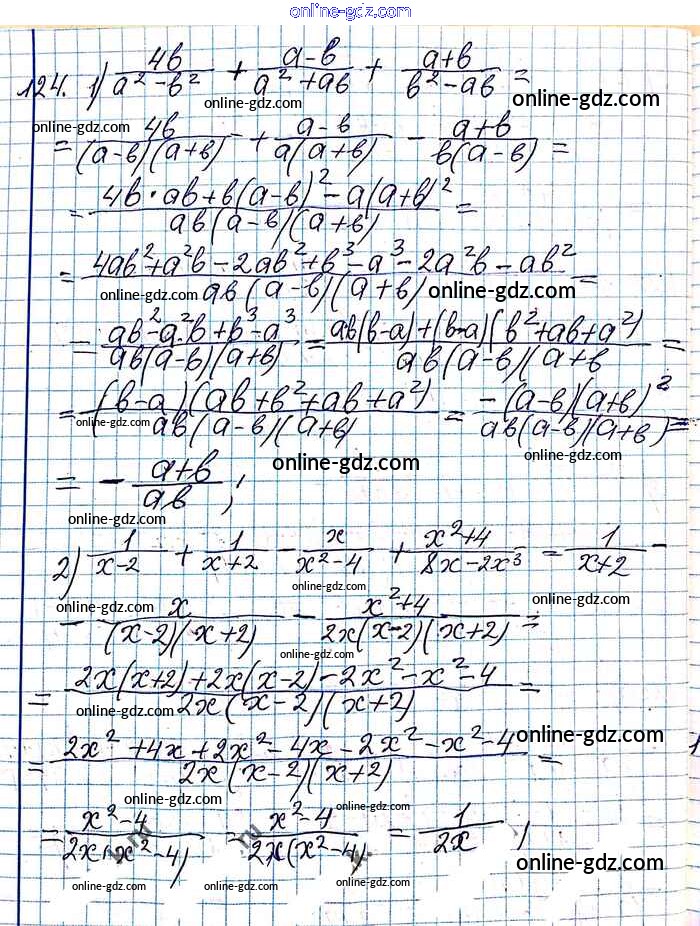 online-gdz.com
124. 1) 4в/(a² - в²) + (a-в)/(a² + aв) + (a+в)/(в² - aв) =
online-gdz.com online-gdz.com online-gdz.com
= 4в/((a-в)(a+в)) + (a-в)/(a(a+в)) - (a+в)/(в(a-в)) =
= (4в·aв + в(a-в)² - a(a+в)²)/(aв(a-в)(a+в)) =
= (4aв² + a²в - 2aв² + в³ - a³ - 2a²в - aв²)/(aв(a-в)(a+в)) =
online-gdz.com online-gdz.com
= (aв² - a²в + в³ - a³)/(aв(a-в)(a+в)) = (aв(в-a) + (в-a)(в² + aв + a²))/(aв(a-в)(a+в =
= ((в-a)(aв + в² + aв + a²))/(aв(a-в)(a+в)) = (-(a-в)(a+в)²)/(aв(a-в)(a+в)) =
online-gdz.com
online-gdz.com online-gdz.com
= - (a+в)/(aв) ;
online-gdz.com
2) 1/(x-2) + 1/(x+2) - x/(x²-4) + (x²+4)/(8x-2x³) = 1/(x+2) -
online-gdz.com
online-gdz.com online-gdz.com
- x/((x-2)(x+2)) - (x²+4)/(2x(x-2)(x+2)) =
online-gdz.com
= (2x(x+2) + 2x(x-2) - 2x² - x² - 4)/(2x(x-2)(x+2)) =
online-gdz.com online-gdz.com
= (2x² + 4x + 2x² - 4x - 2x² - x² - 4)/(2x(x-2)(x+2)) =
online-gdz.com online-gdz.com
= (x²-4)/(2x(x²-4)) = (x²-4)/(2x(x²-4)) = 1/(2x) ;
online-gdz.com
online-gdz.com online-gdz.com online-gdz.com